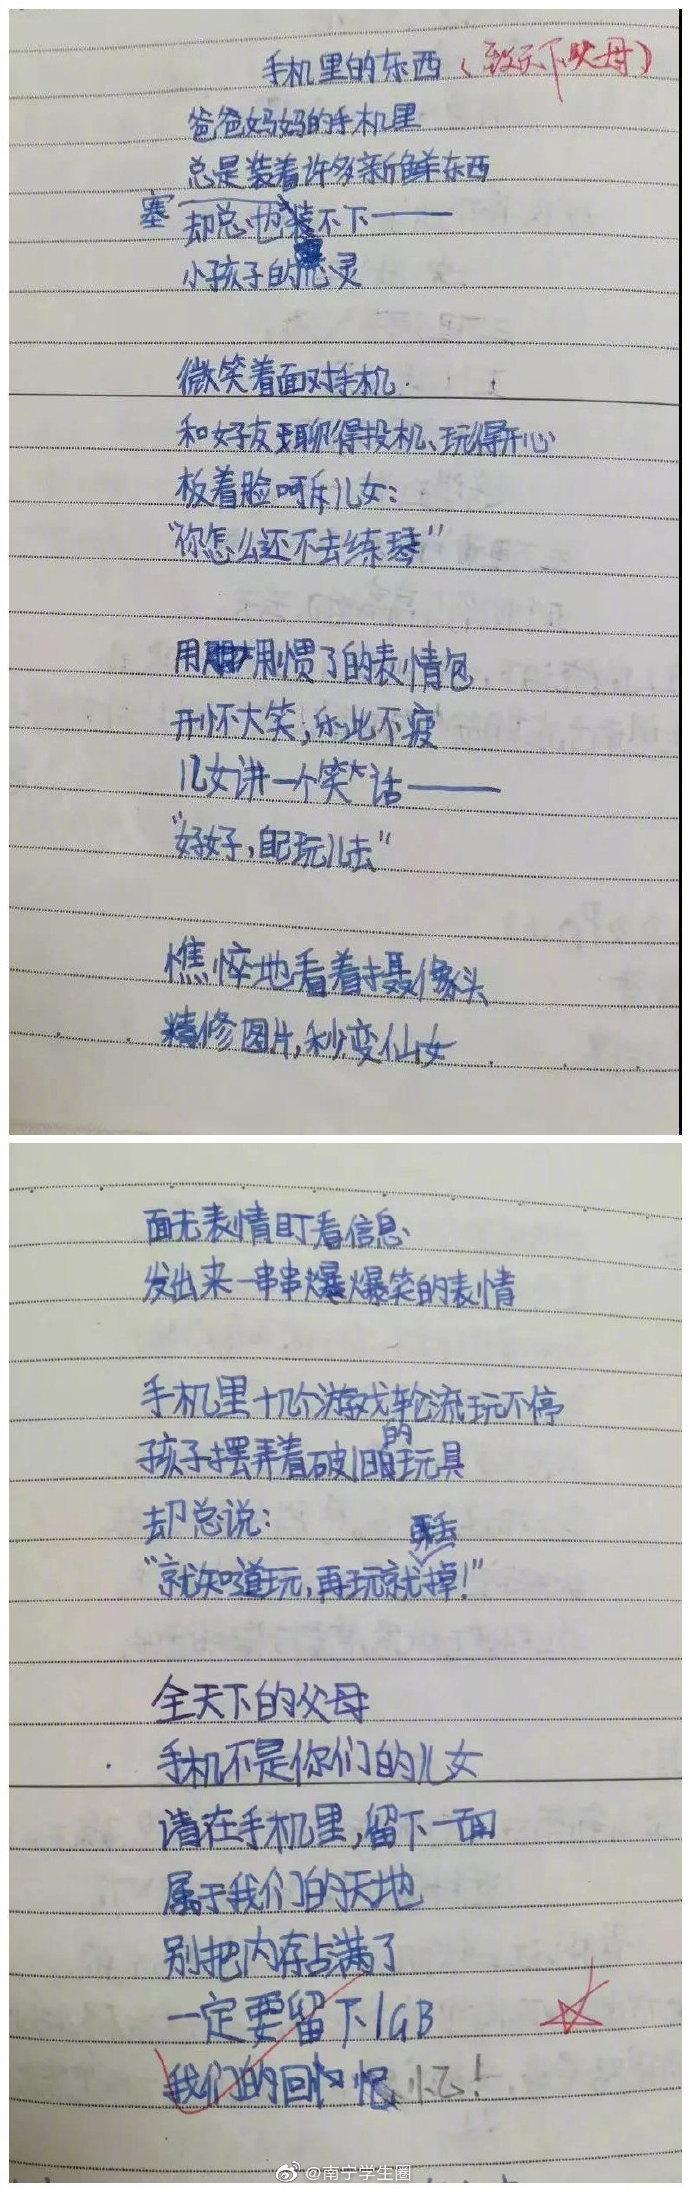 手机里的东西(致天下父母)
爸爸妈妈的手机里
总是装着许多新鲜东西
塞
却总也装不下——
小孩子的心灵
微笑着面对手机.
和好友聊得投机、玩得开心
板着脸呵斥儿女:
"你怎么还不去练琴"
用用惯了的表情包
开怀大笑,乐此不疲
儿女讲一个笑话——
"好好,自己玩儿去"
憔悴地看着摄像头
精修图片,秒变仙女
面无表情盯着信息
发出来一串串爆爆笑的表情
手机里十几个游戏轮流玩不停
孩子摆弄着破旧的玩具
却总说:
"就知道玩,再玩就丢掉!"
全天下的父母
手机不是你们的儿女
请在手机里,留下一面
属于我们的天地
别把内存占满了
一定要留下1GB
我们的回忆!
@南宁学生圈